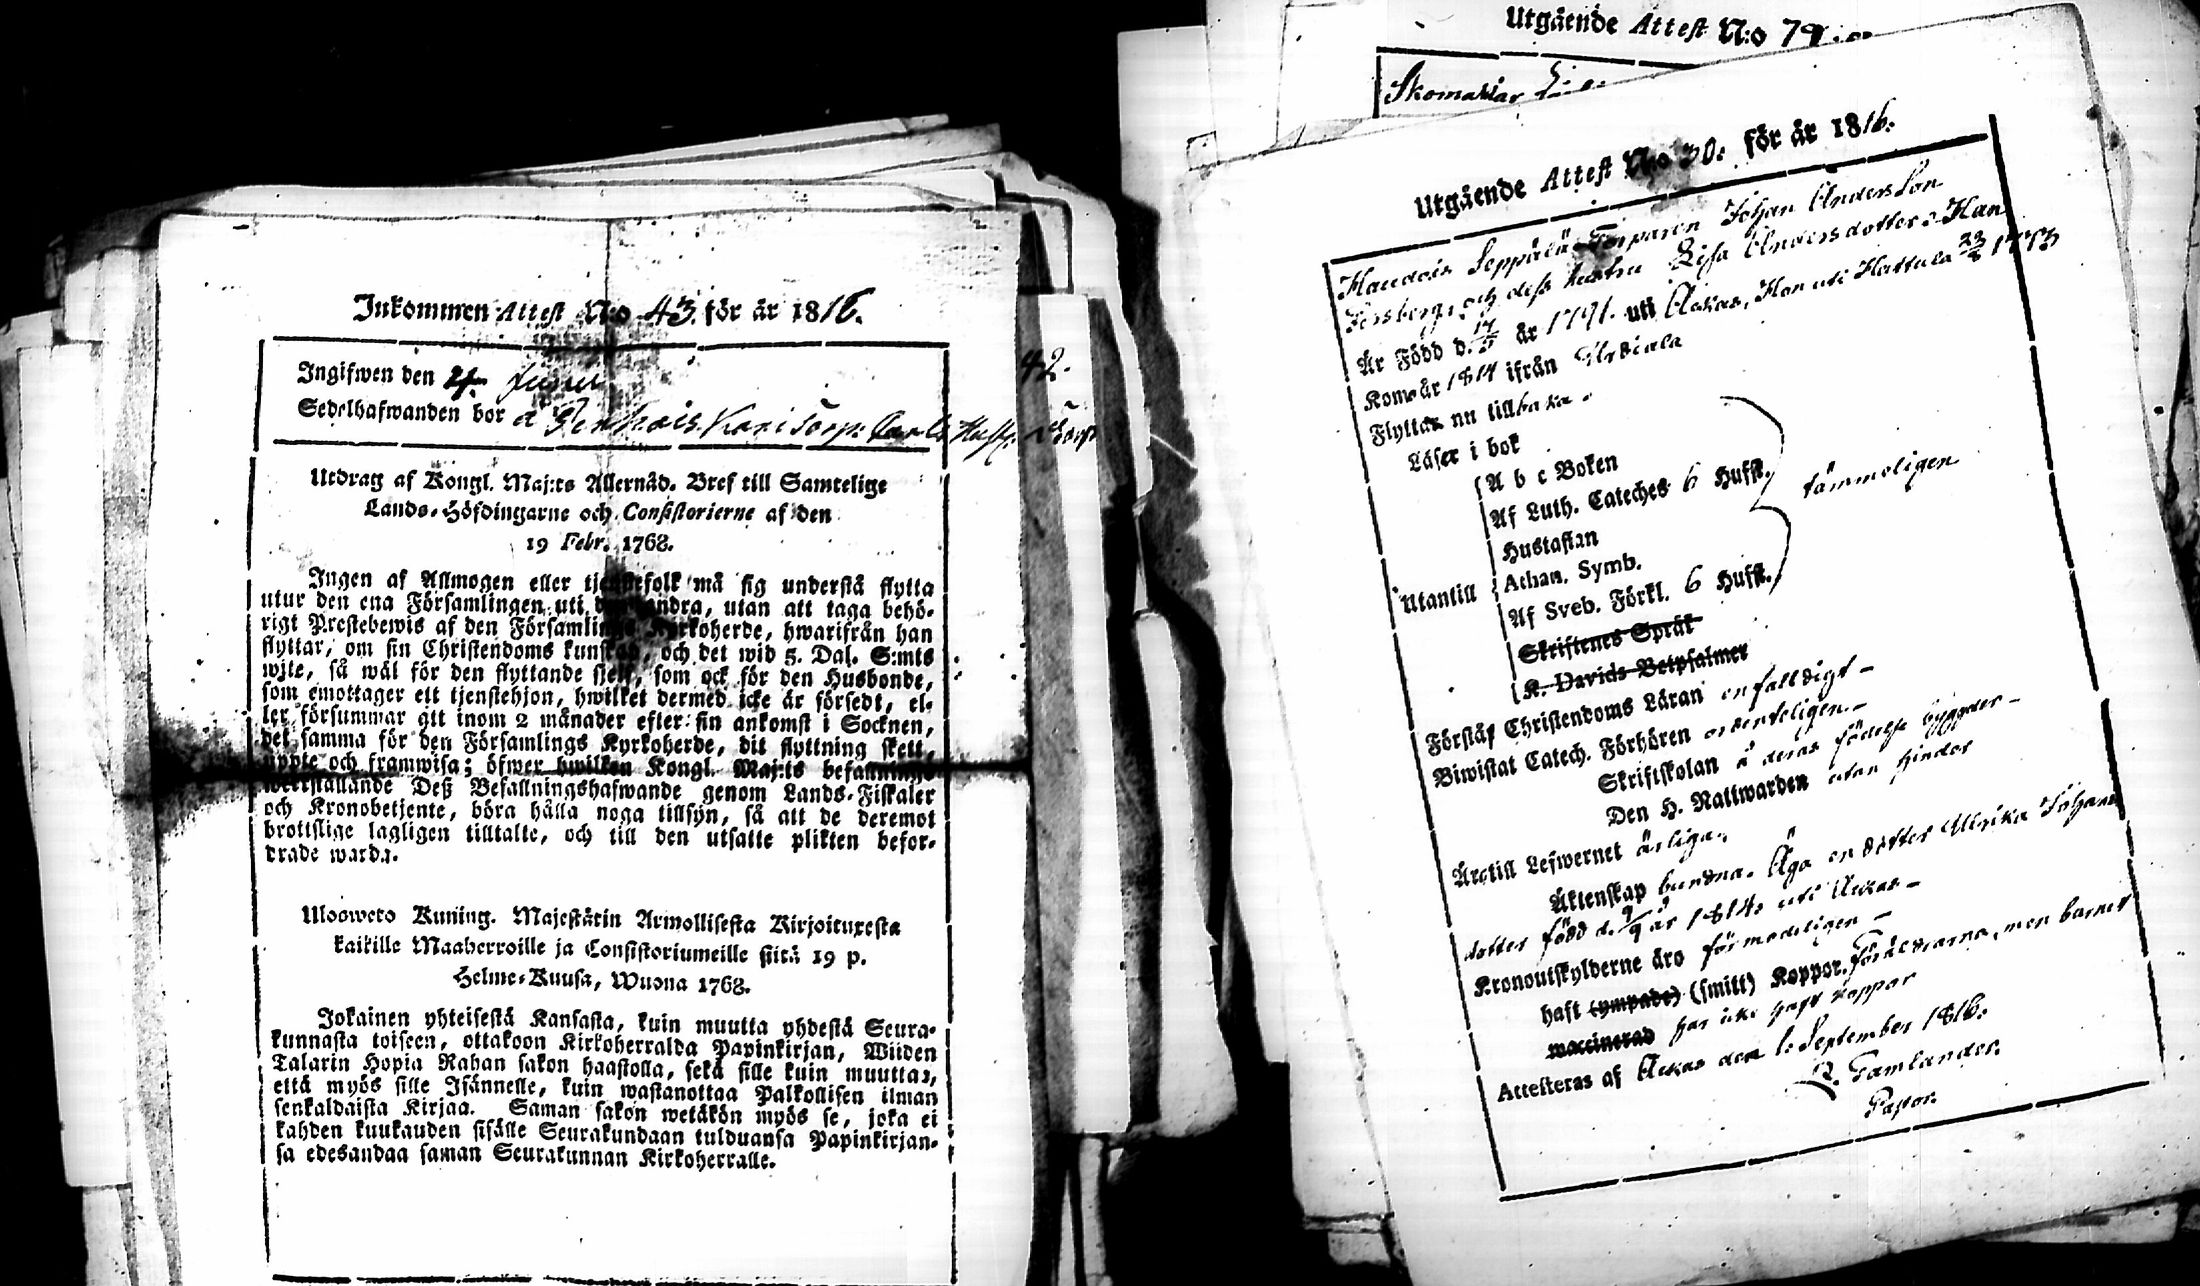 Inkommen Attest N:o 43. för år 1816.
Ingifwen den 4. Junii
Sedelhafwanden bor å
Utdrag af Kongl. Maj:ts Allernåd. Bref till Samtelige
Lands-Höfdingarne och Consistorierne af den
19 Febr. 1768.
Ingen af Allmogen eller tjenstefolk må sig understå flytta
utur den ena Församlingen uti den andra, utan att taga behö-
rigt Prestebewis af den Församlings Kyrkoherde, hwarifrån han
flyttar, om sin Christendoms kunskap, och det wid 5. Dal. S:mts
wite, så wäl för den flyttande sjelf, som ock för den Husbonde,
som emottager ett tjenstehjon, hwilket dermed icke är försedt, el-
ler försummar att inom 2 månader efter sin ankomst i Socknen,
det samma för den Församlings Kyrkoherde, dit flyttning skett,
uppte och framwisa; öfwer hwilken Kongl. Maj:ts befallnings
werkställande Deß Befallningshafwande genom Lands-Fiskaler
och Kronobetjente, böra hålla noga tillsyn, så att de deremot
brottslige lagligen tilltalte, och till den utsatte plikten befor-
drade warda.
Ulosweto Kuning. Majestätin Armollisesta Kirjoituxesta
kaikille Maaherroille ja Consistoriumeille siitä 19 p.
Helme-Kuusa, Wuona 1768.
Jokainen yhteisestä Kansasta, kuin muutta yhdestä Seura-
kunnasta toiseen, ottakoon Kirkoherralda Papinkirjan, Wiiden
Talarin Hopia Rahan sakon haastolla, sekä sille kuin muuttaa,
että myös sille Isännelle, kuin wastanottaa Palkollisen ilman
senkaldaista Kirjaa. Saman sakon wetäkön myös se, joka ei
kahden kuukauden sisälle Seurakundaan tulduansa Papinkirjan-
sa edesandaa saman Seurakunnan Kirkoherralle.
42.
Utgående Attest N:o 79
Skomakar
Utgående Attest N:o 30. för år 1816.
Seppälä Torparen Johan Andersson
Forsberg, och dess hustru Lisa Andersdotter. Han
Är Född d. 17/5 år 1791. uti Ackas, Hon uti Hattula 23/8 1773
Kom år 1814 ifrån Urdiala
Flyttar nu tillbaka.
Läser i bok
Utantill
A b c Boken
Af Luth. Cateches 6 Hufst.
Hustaflan
Athan. Symb.
Af Sveb. Förkl. 6 Hufst.
Skriftenes Språk
K. Davids Botpsalmer
tämmeligen
Förstår Christendoms Läran enfaldigt
Biwistat Catech. Förhören ordenteligen
Skriftskolan å deras födelse bygder
Den H. Nattwarden utan hinder
Äro till Lefwernet ärliga.
Äktenskap bundna. Äga en dotter Ulrika Johans
dotter född d. 9/9 år 1814. uti Ackas
Kronoutskylderne äro förmodeligen
haft (ympade) (smitt) Koppor. Föräldrarna, men barnet
waccinerad har icke haft koppor
Attesteras af Ackas den 1. September 1816.
Gamlander.
Pastor.